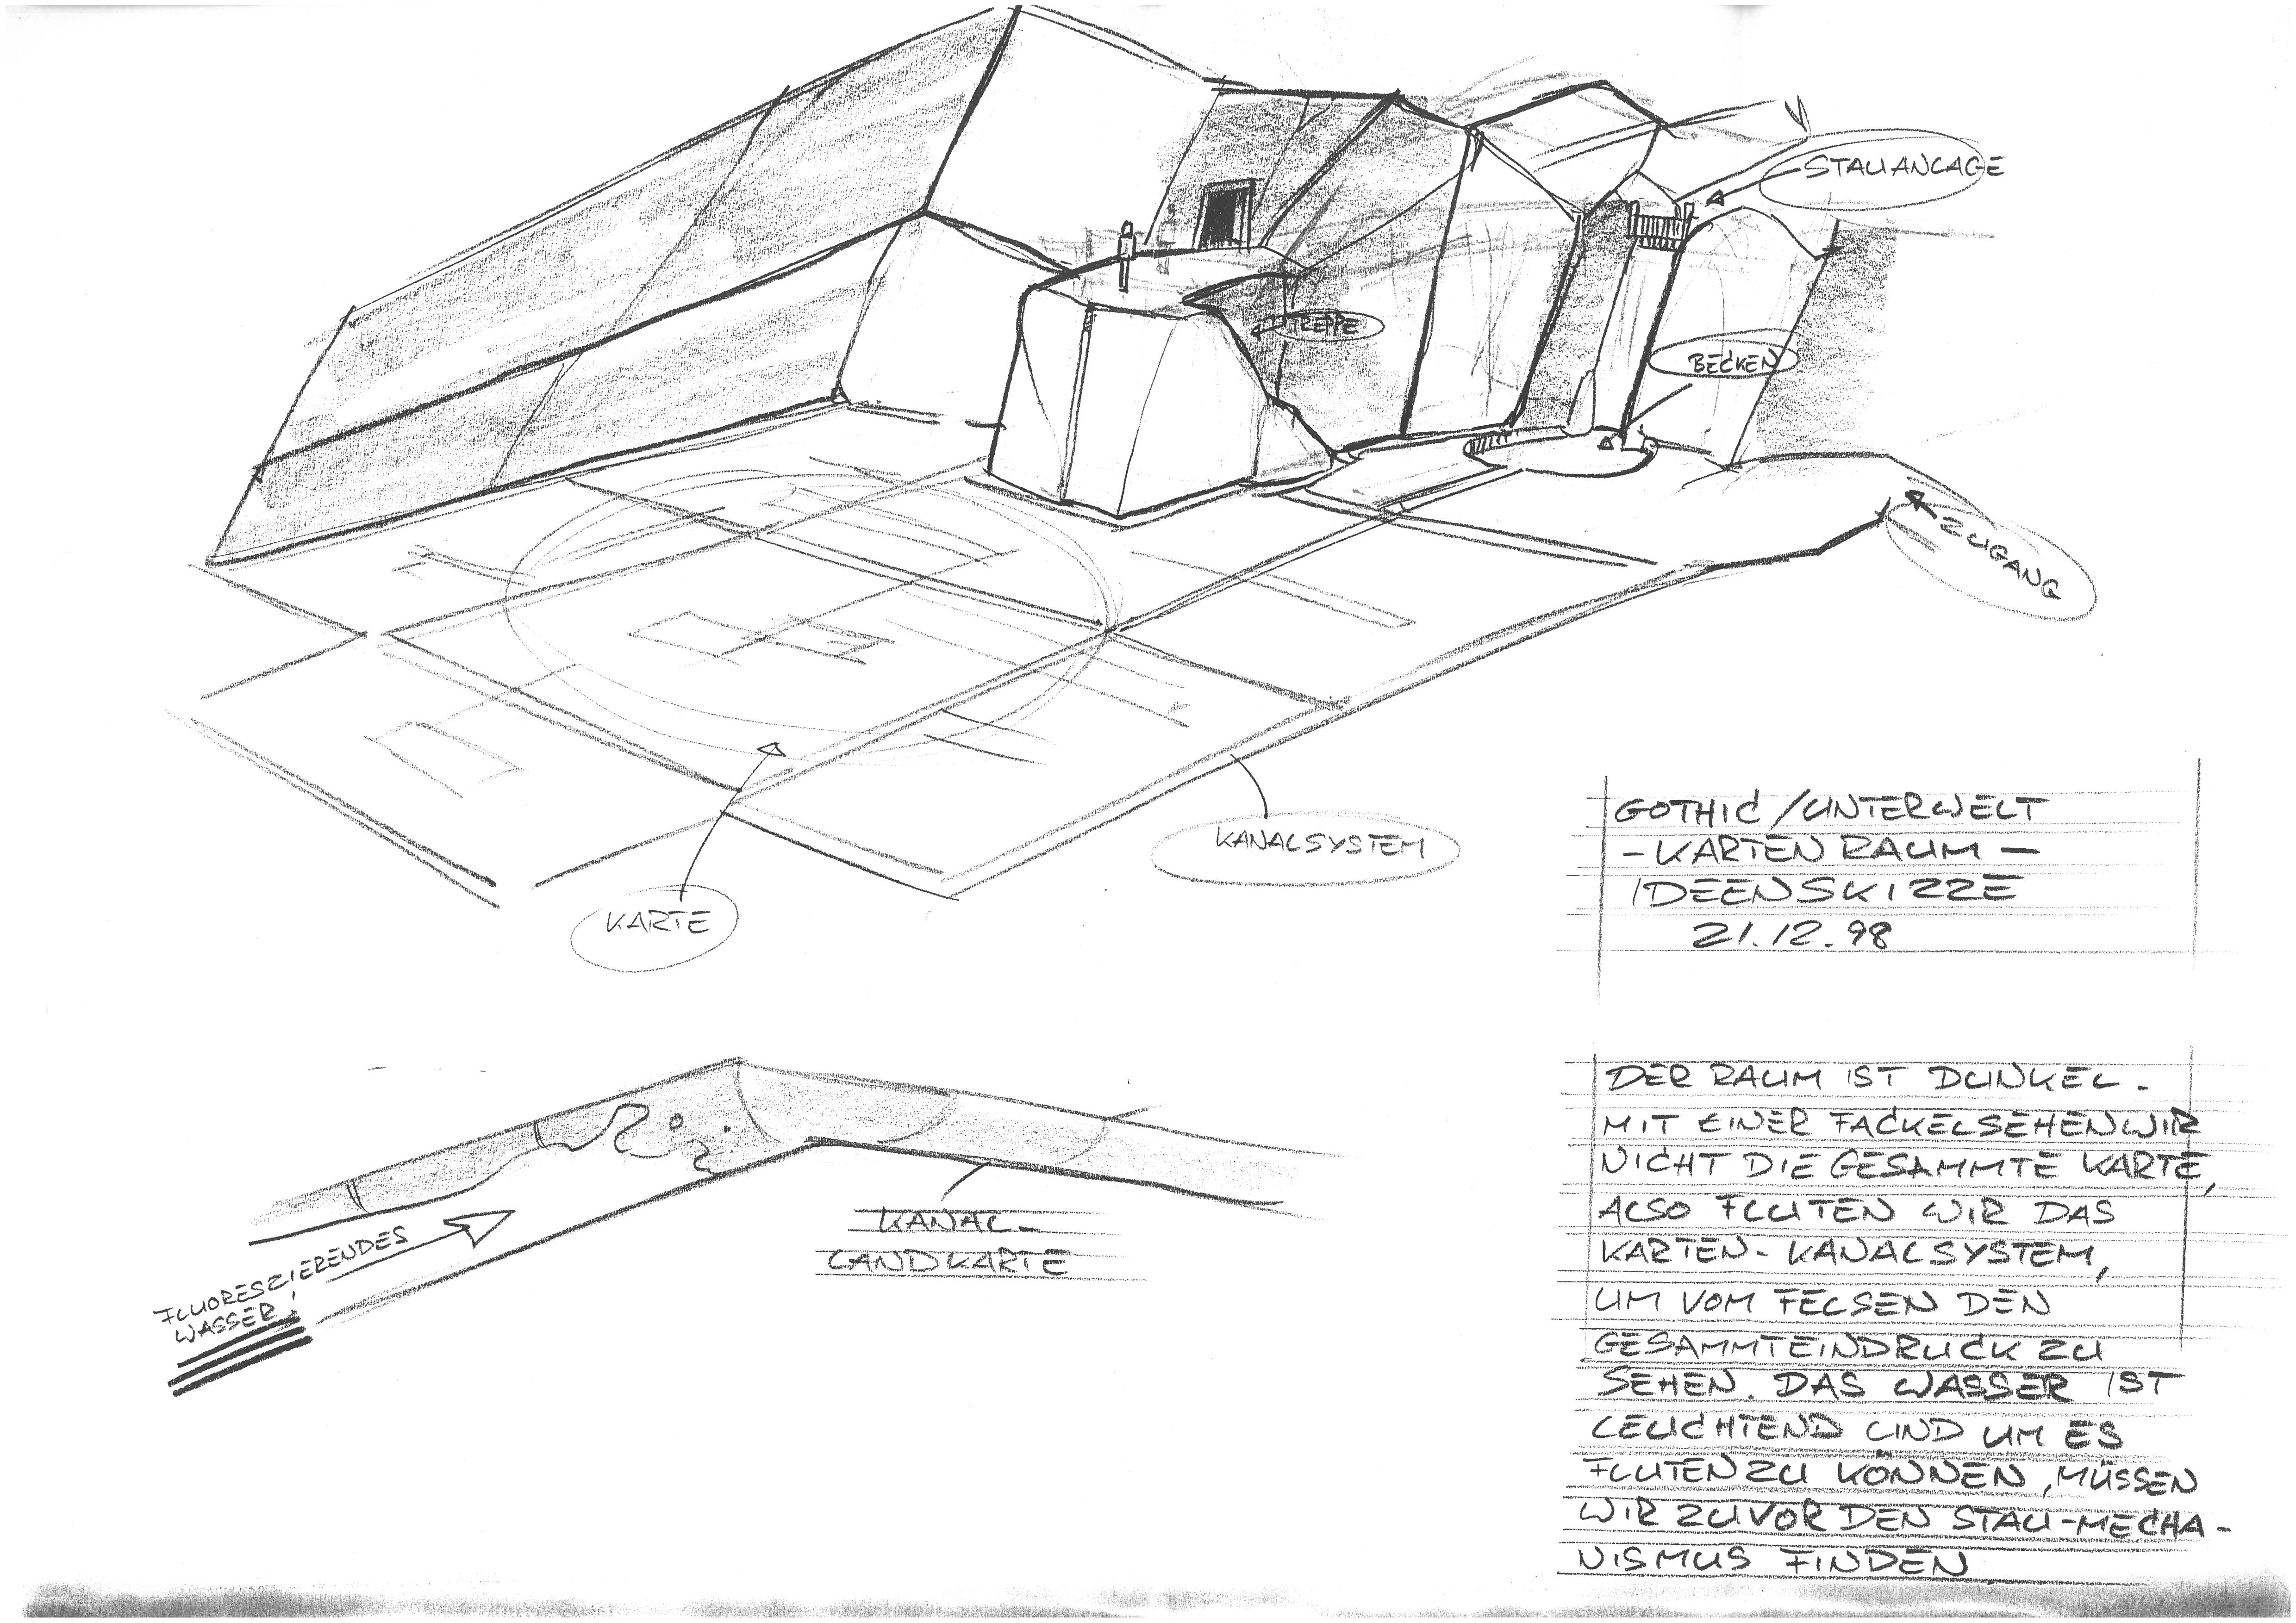 STAUANLAGE
TREPPE
BECKEN
ZUGANG
KANALSYSTEM
KARTE
GOTHIC / UNTERWELT
- KARTENRAUM -
IDEENSKIZZE
21.12.98
FLUORESZIERENDES
WASSER!
KANAL-
LANDKARTE
DER RAUM IST DUNKEL.
MIT EINER FACKEL SEHEN WIR
NICHT DIE GESAMMTE KARTE,
ALSO FLUTEN WIR DAS
KARTEN-KANALSYSTEM,
UM VOM FELSEN DEN
GESAMMTEINDRUCK ZU
SEHEN. DAS WASSER IST
LEUCHTEND UND UM ES
FLUTEN ZU KÖNNEN, MÜSSEN
WIR ZUVOR DEN STAU-MECHA-
NISMUS FINDEN